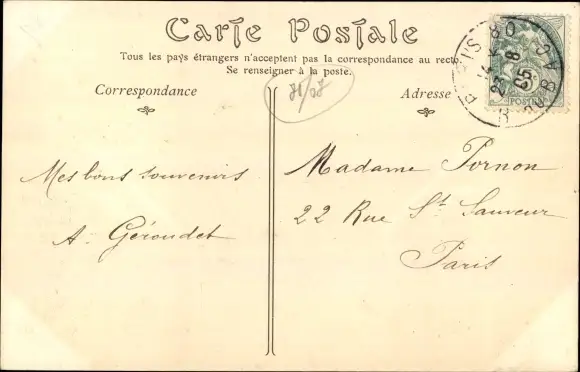 Carte Postale
Tous les pays étrangers n'acceptent pas la correspondance au recto.
Se renseigner à la poste.
Correspondance
Adresse
Mes bons souvenirs
A. Géroudet
Madame Pornon
22 Rue St Sauveur
Paris
PARIS
POSTES